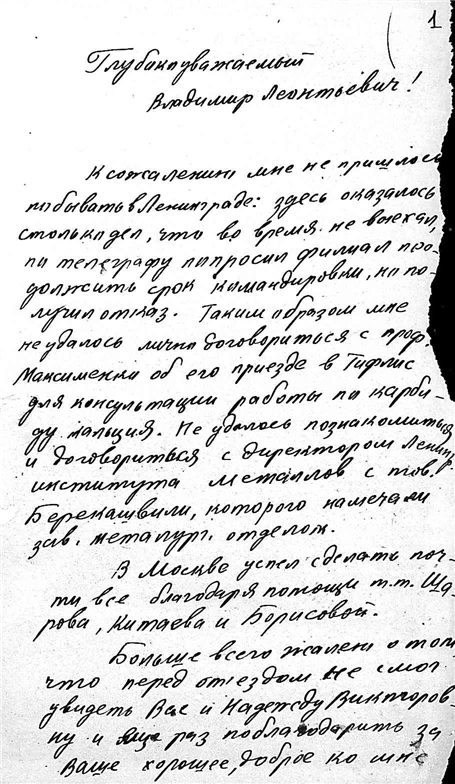 1
Глубокоуважаемый
Владимир Леонтьевич!
К сожалению мне не пришлось
побывать в Ленинграде: здесь оказалось
столько дел, что во время не выехал,
по телеграфу попросил филиал про-
должить срок командировки, но по-
лучил отказ. Таким образом мне
не удалось лично договориться с проф.
Максименко об его приезде в Тифлис
для консультации работы по карби-
ду кальция. Не удалось познакомиться
и договориться с директором Ленингр.
института металлов с тов.
Берекашвили, которого намечали
зав. металург. отделом.
В Москве успел сделать поч-
ти все благодаря помощи т.т. Ша-
рова, Китаева и Борисовой.
Больше всего жалею о том
что перед отъездом не смог
увидеть Вас и Надежду Викторов-
ну и еще раз поблагодарить за
Ваше хорошее, доброе ко мне